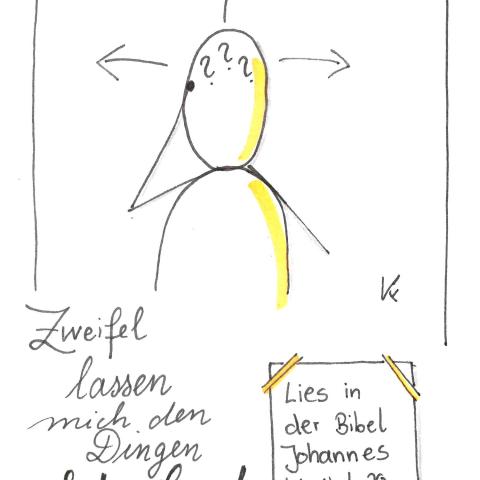 ? ? ?
Zweifel
lassen
mich den
Dingen
Lies in
der Bibel
Johannes